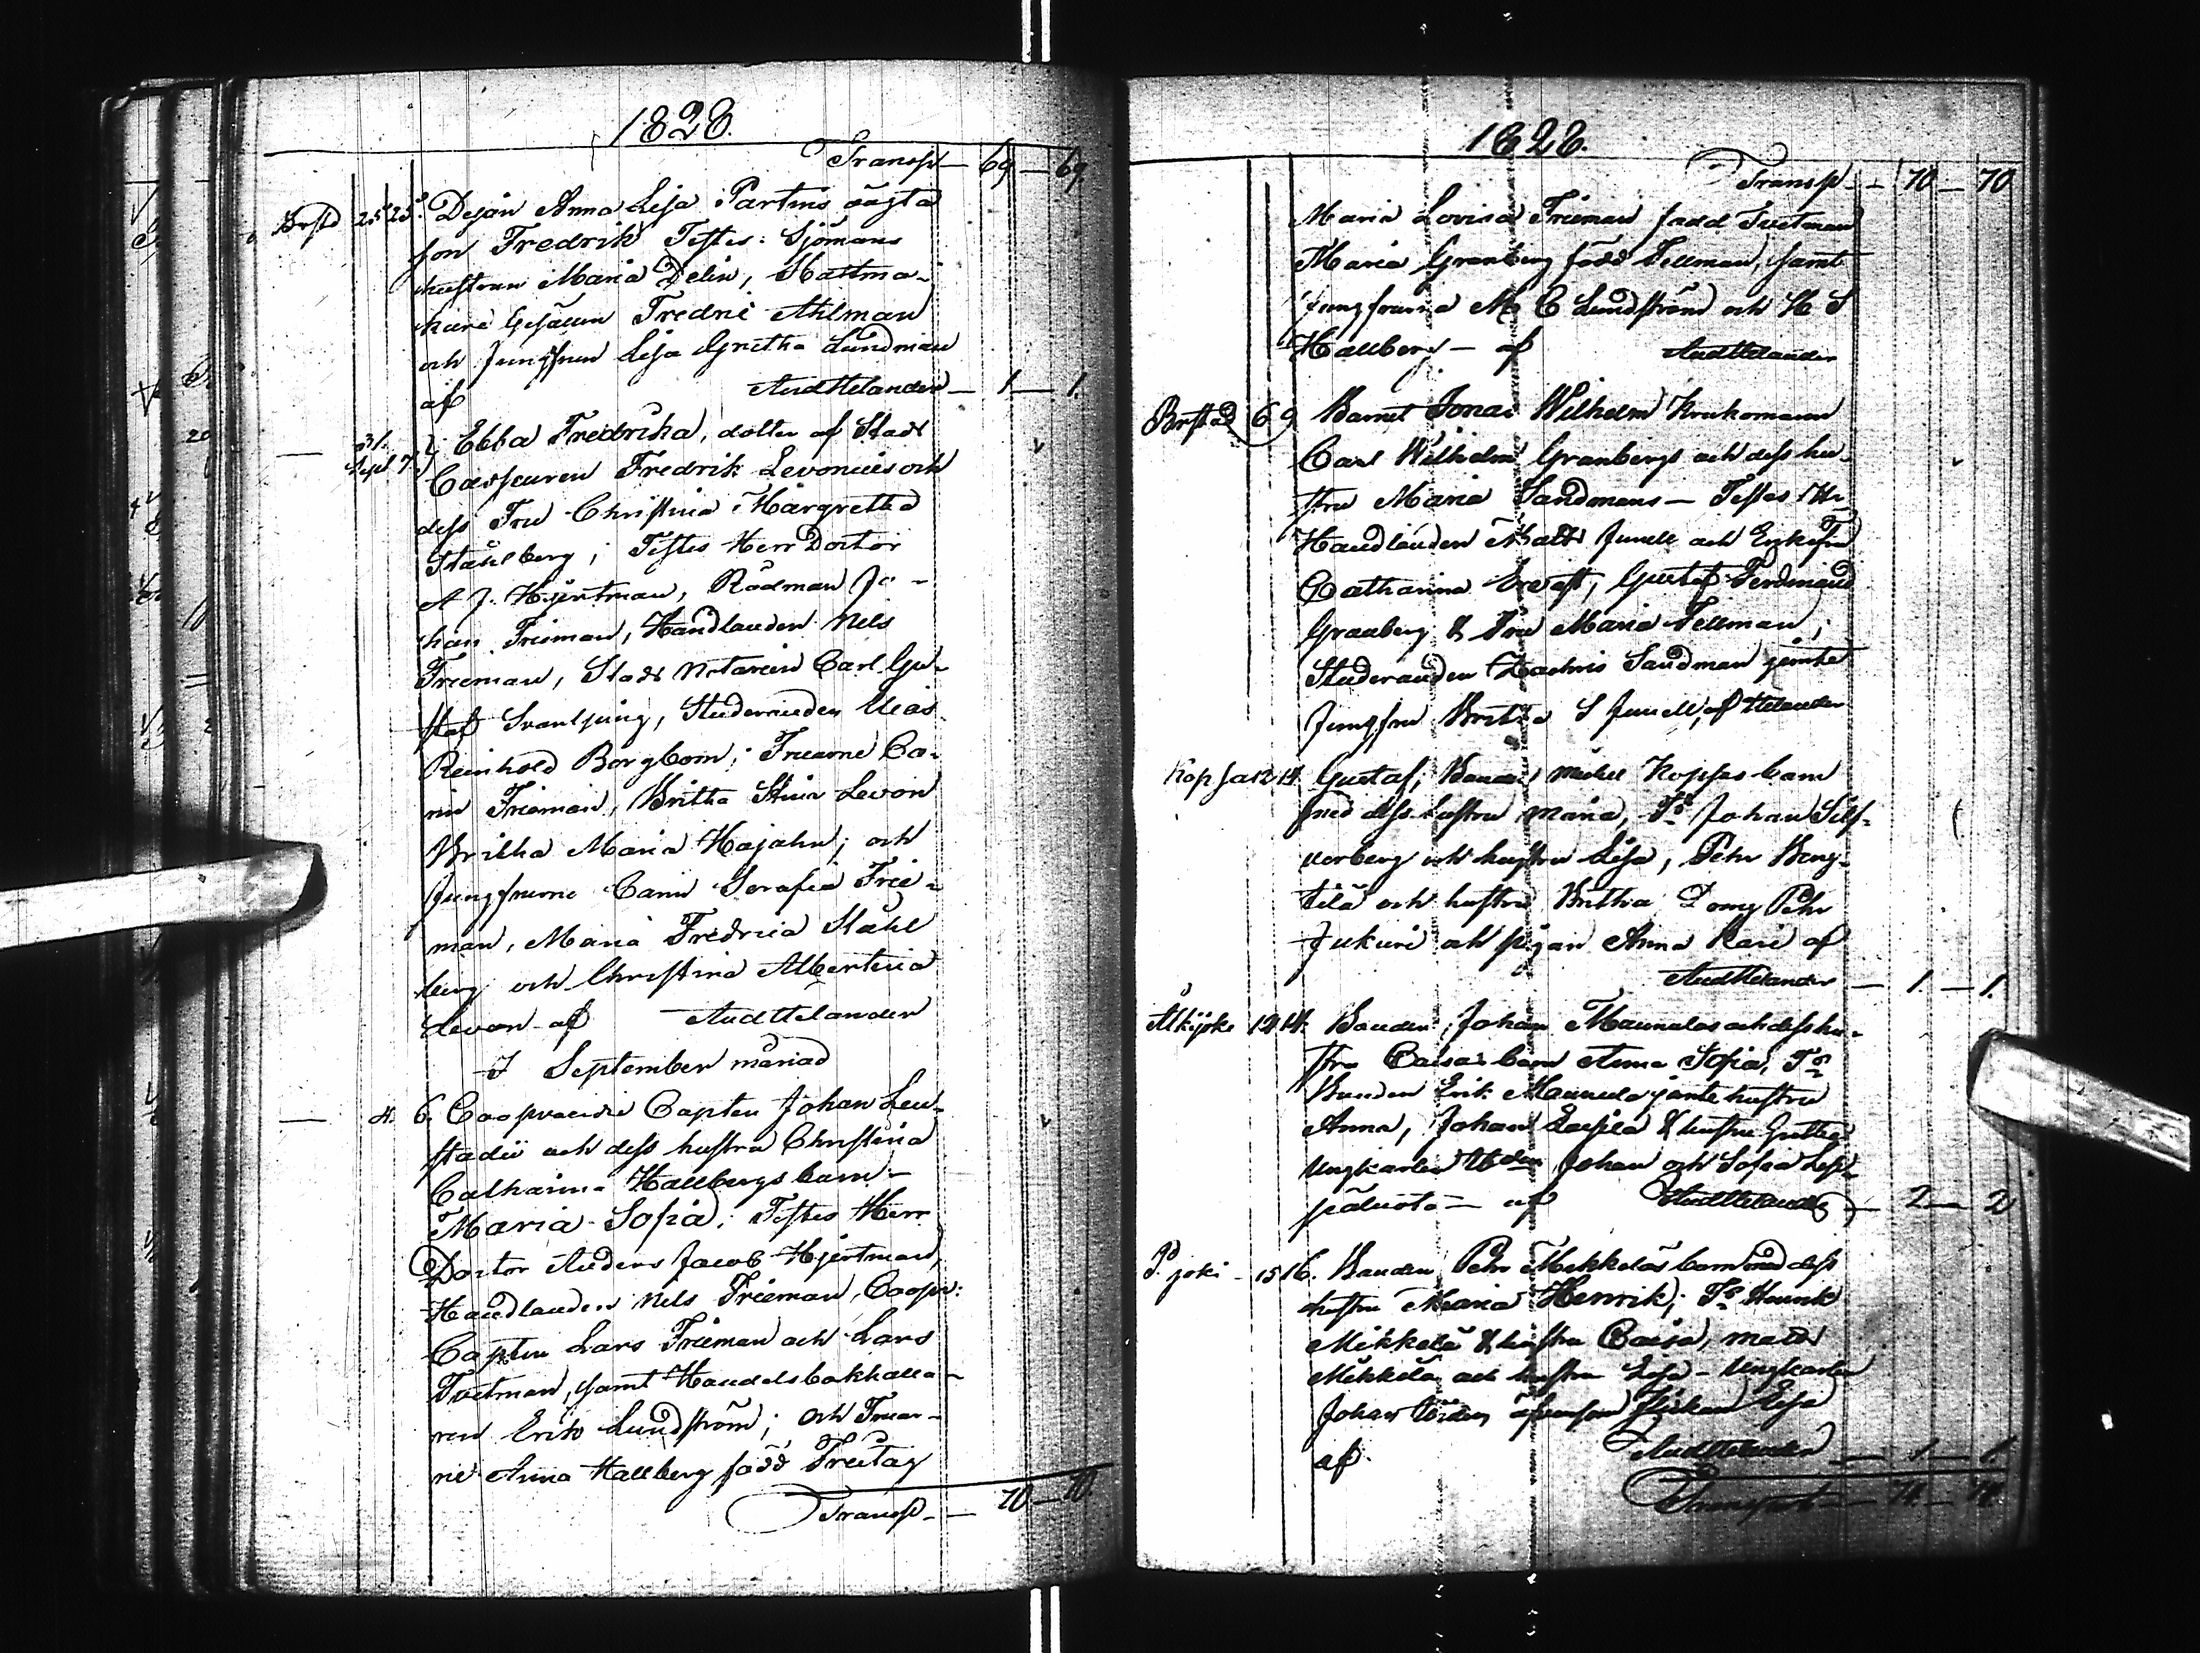 1828.
Transp — 69 — 69
Brstd 25 25. Dejan Anna Lisa Partins oägta
son Fredrik Testes: Sjömans
hustrun Maria Delin, Hattma-
kare Gesällen Fredric Ahlman
och Jungfrun Lisa Gretha Lundman
af AndHelander — 1 — 1.
— 31. Sept 7. Ebba Fredrika, dotter af Stads
Casseuren Fredrik Levonius och
dess Fru Christina Margretha
Ståhlberg; Testes Herr Doctor
A J. Hjertman, Rådman Jo-
han Frieman, Handlanden Nils
Frieman, Stads Notarien Carl Gu-
staf Svanljung, Studeranden Elias
Reinhold Borgbom; Fruarne Ca-
rin Frieman, Britha Stina Levon
Britha Maria Hajahn; och
Jungfrurne Carin Serafia Frie-
man, Maria Fredrica Ståhl
berg och Christina Albertina
Levon af AndHelander
I September månad
— 4. 6. Coopvaerdie Capten Johan Leu-
stadii och dess hustru Christina
Catharina Hallbergs barn
Maria Sofia; Testes Herr
Doctor Anders Jacob Hjertman,
Handlanden Nils Frieman, Coopv:
Capten Lars Frieman och Lars
Tvetman, samt Handelsbokhålla-
ren Erik Lundström; och Fruar-
ne Anna Hallberg född Freitag
Transp — 70 — 70.
1828.
Transp — 70 — 70
Maria Lovisa Frieman född Tvetman
Maria Granberg född Fellman, samt
Jungfrurna M C Lundström och H S
Hallberg — af AndHelander
Brstad 6 9 Barnet Jonas Wilhelm Krukomakaren
Carl Wilhelm Granbergs och dess hu-
stru Maria Sandmans — Testes Hr
Handlanden Matts Junell och Enkefru
Catharina, Gustaf Ferdinand
Granberg & Fru Maria Fellman;
Studeranden Zachris Sandman jemte
Jungfru Britha S Junell, af Helander
Kopsa 12 14. Gustaf, Bonden Michel Kopsas barn
med dess hustru Maria, Ts Johan Silf-
verberg och hustru Lisa, Pehr Beng-
tilä och hustru Britha Dreng Pehr
Jukuri och pigan Anna Kari af
AndHelander — 1. — 1.
Alkijoki 12 14. Bonden Johan Maunulas och dess hu-
stru Caisas barn Anna Sofia, Ts
Bonden Erik Maunula jemte hustru
Anna, Johan & hustru Gretha
Ungkarlen Johan och Sofia
— af AndHelander — 2 — 2
P. joki — 15 16. Bonden Pehr Mikkeläs barn med dess
hustru Maria Henrik; Ts Henrik
Mikkelä & hustru Caisa, Matts
Mikkelä och hustru Lisa — Ungkarlen
Johan flickan Lisa
af. AndHelander — 1 — 1.
Transport — 74 — 74.